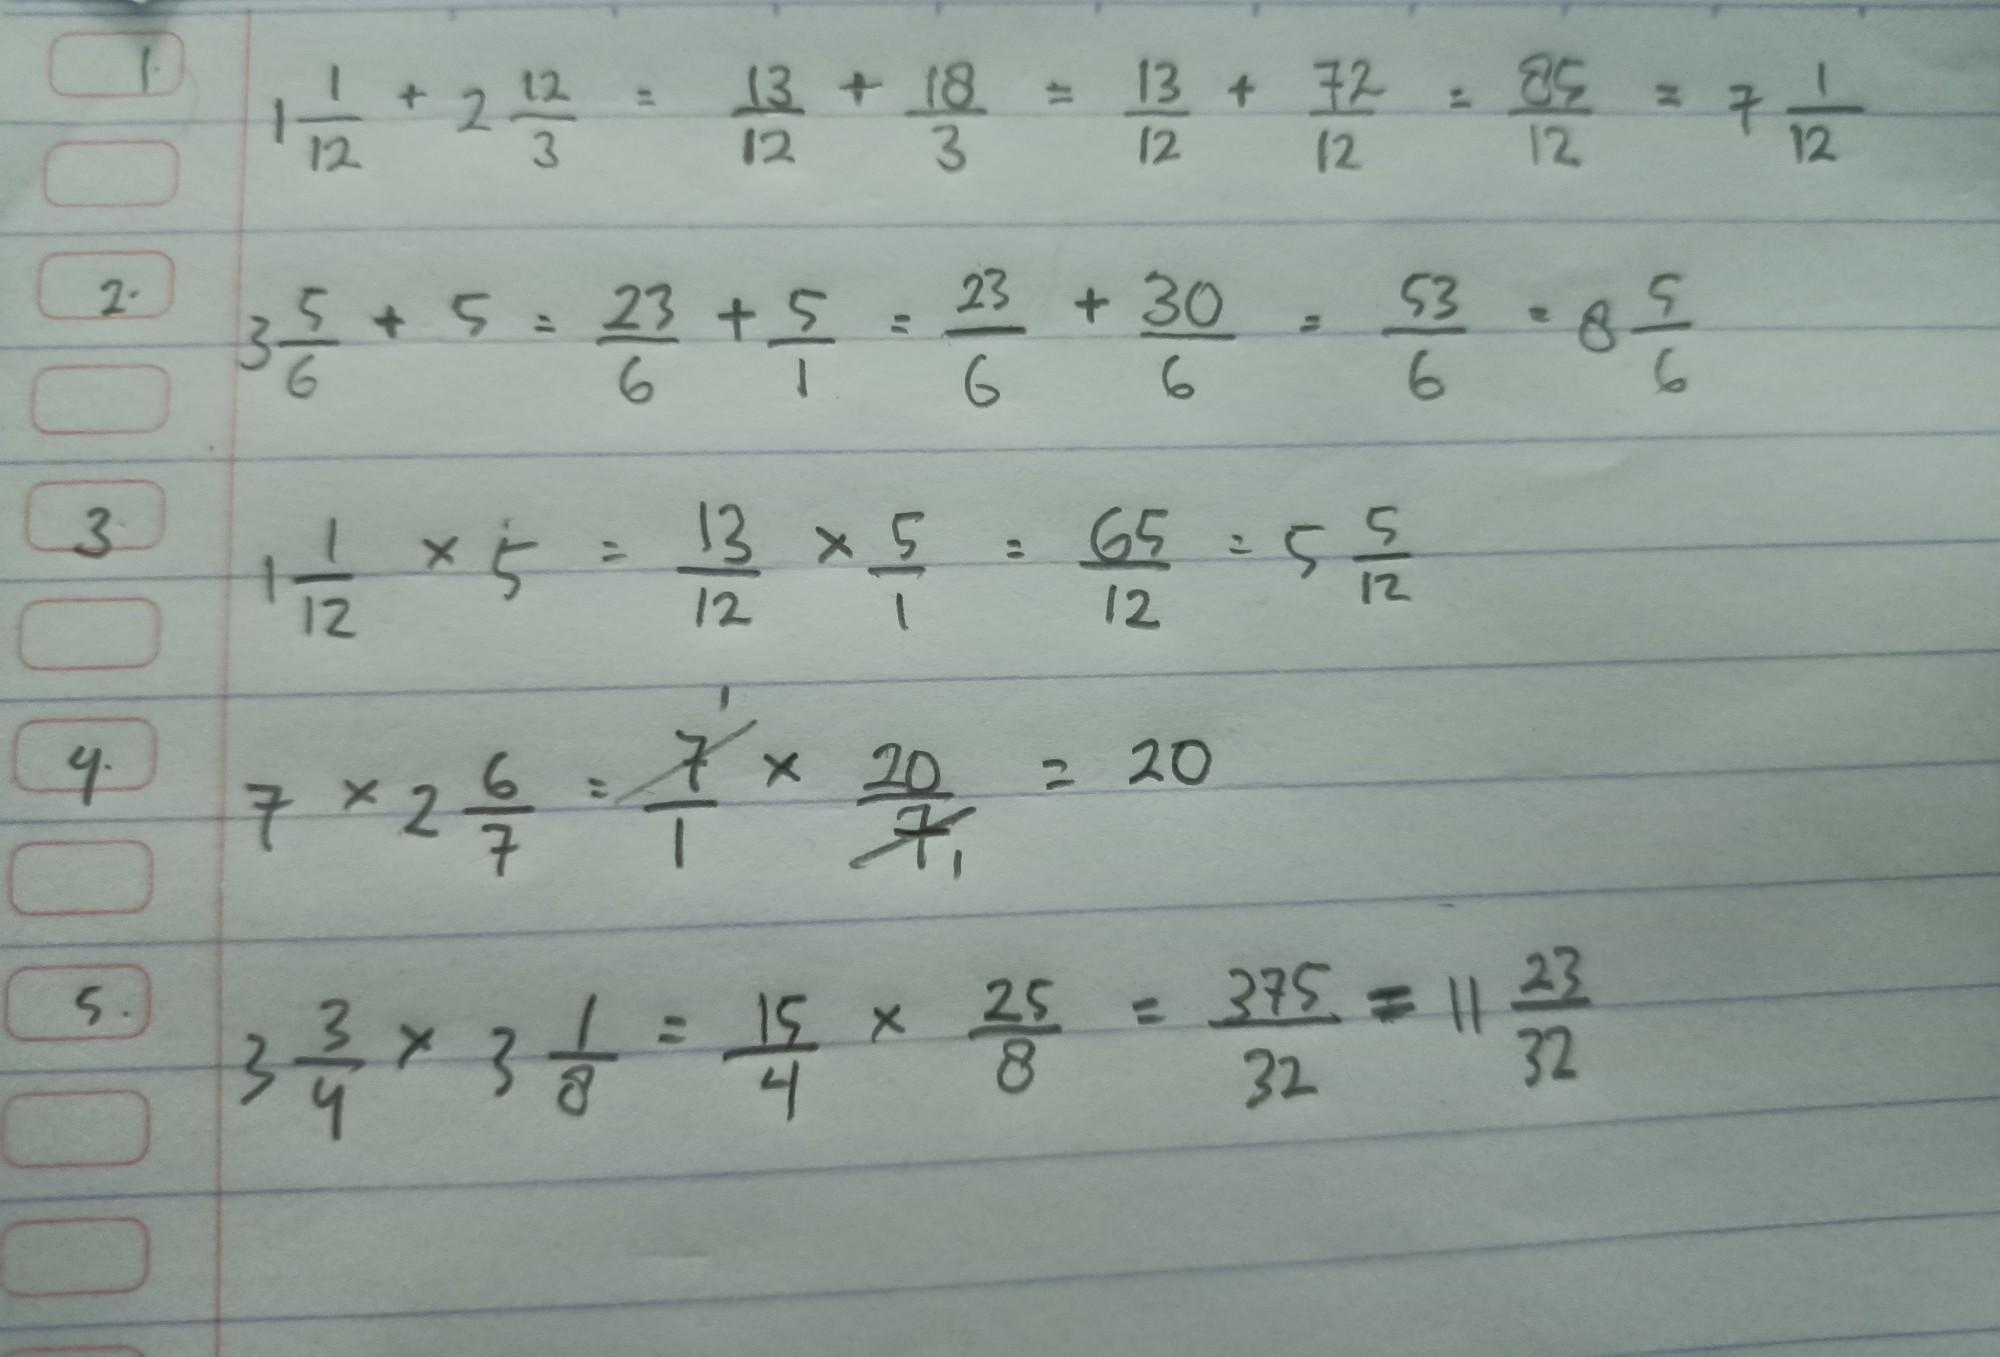 1. 1 1/12 + 2 12/3 = 13/12 + 18/3 = 13/12 + 72/12 = 85/12 = 7 1/12
2. 3 5/6 + 5 = 23/6 + 5/1 = 23/6 + 30/6 = 53/6 = 8 5/6
3. 1 1/12 × 5 = 13/12 × 5/1 = 65/12 = 5 5/12
4. 7 × 2 6/7 = 7/1 × 20/7 = 20
5. 3 3/4 × 3 1/8 = 15/4 × 25/8 = 375/32 = 11 23/32